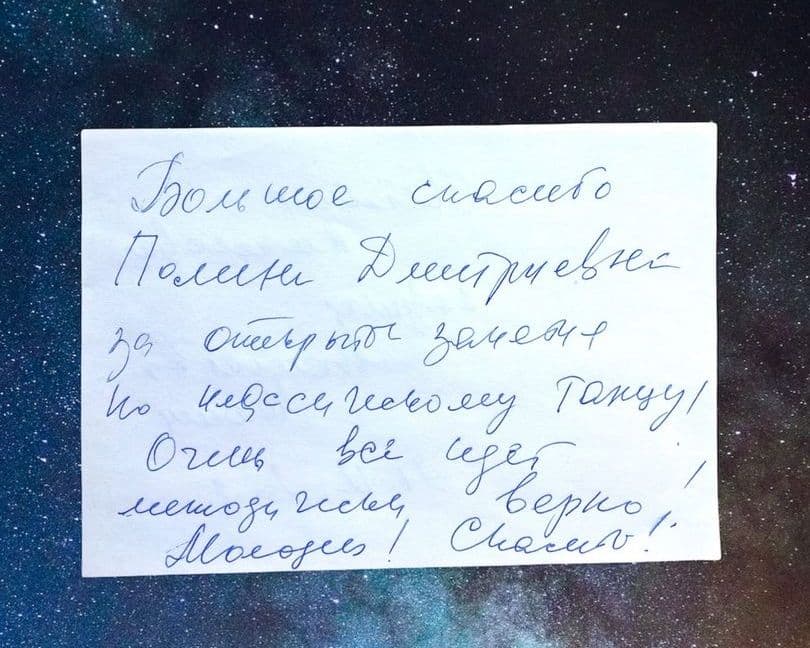 Большое спасибо
Полине Дмитриевне
за открытое занятие
по классическому танцу!
Очень всё идёт
методически верно!
Молодец! Спасибо!